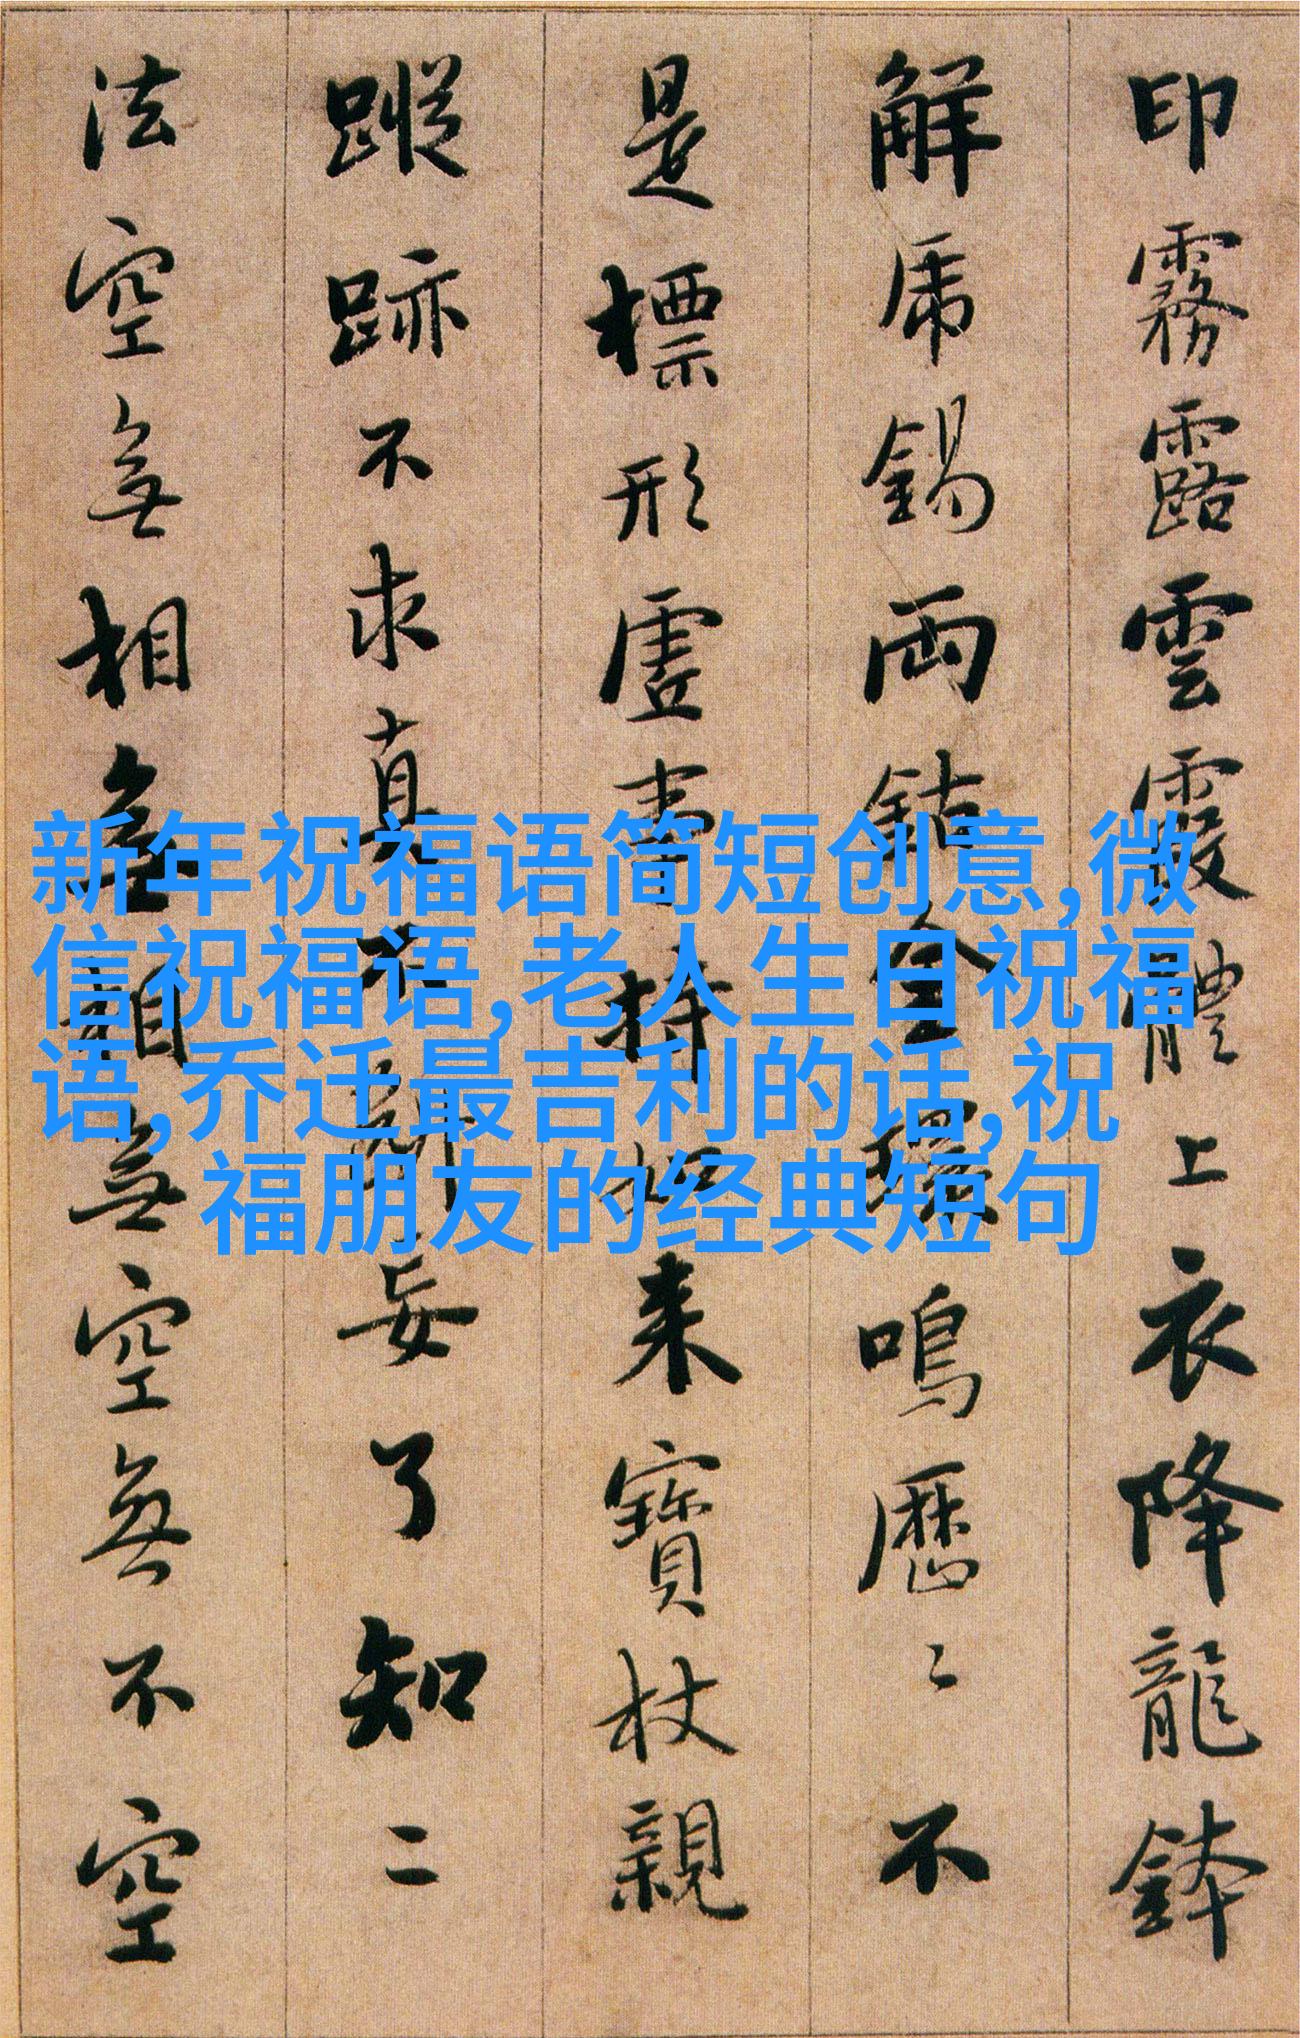 印霧露雲霞體上衣降龍鉢
解虎錫兩鈷金環鳴歷〻不
是標形虛事持如來寶杖親
蹤跡不求真不斷妄了知二
法空無相無相無空無不空
新年祝福语简短创意,微
信祝福语,老人生日祝福
语,乔迁最吉利的话,祝
福朋友的经典短句